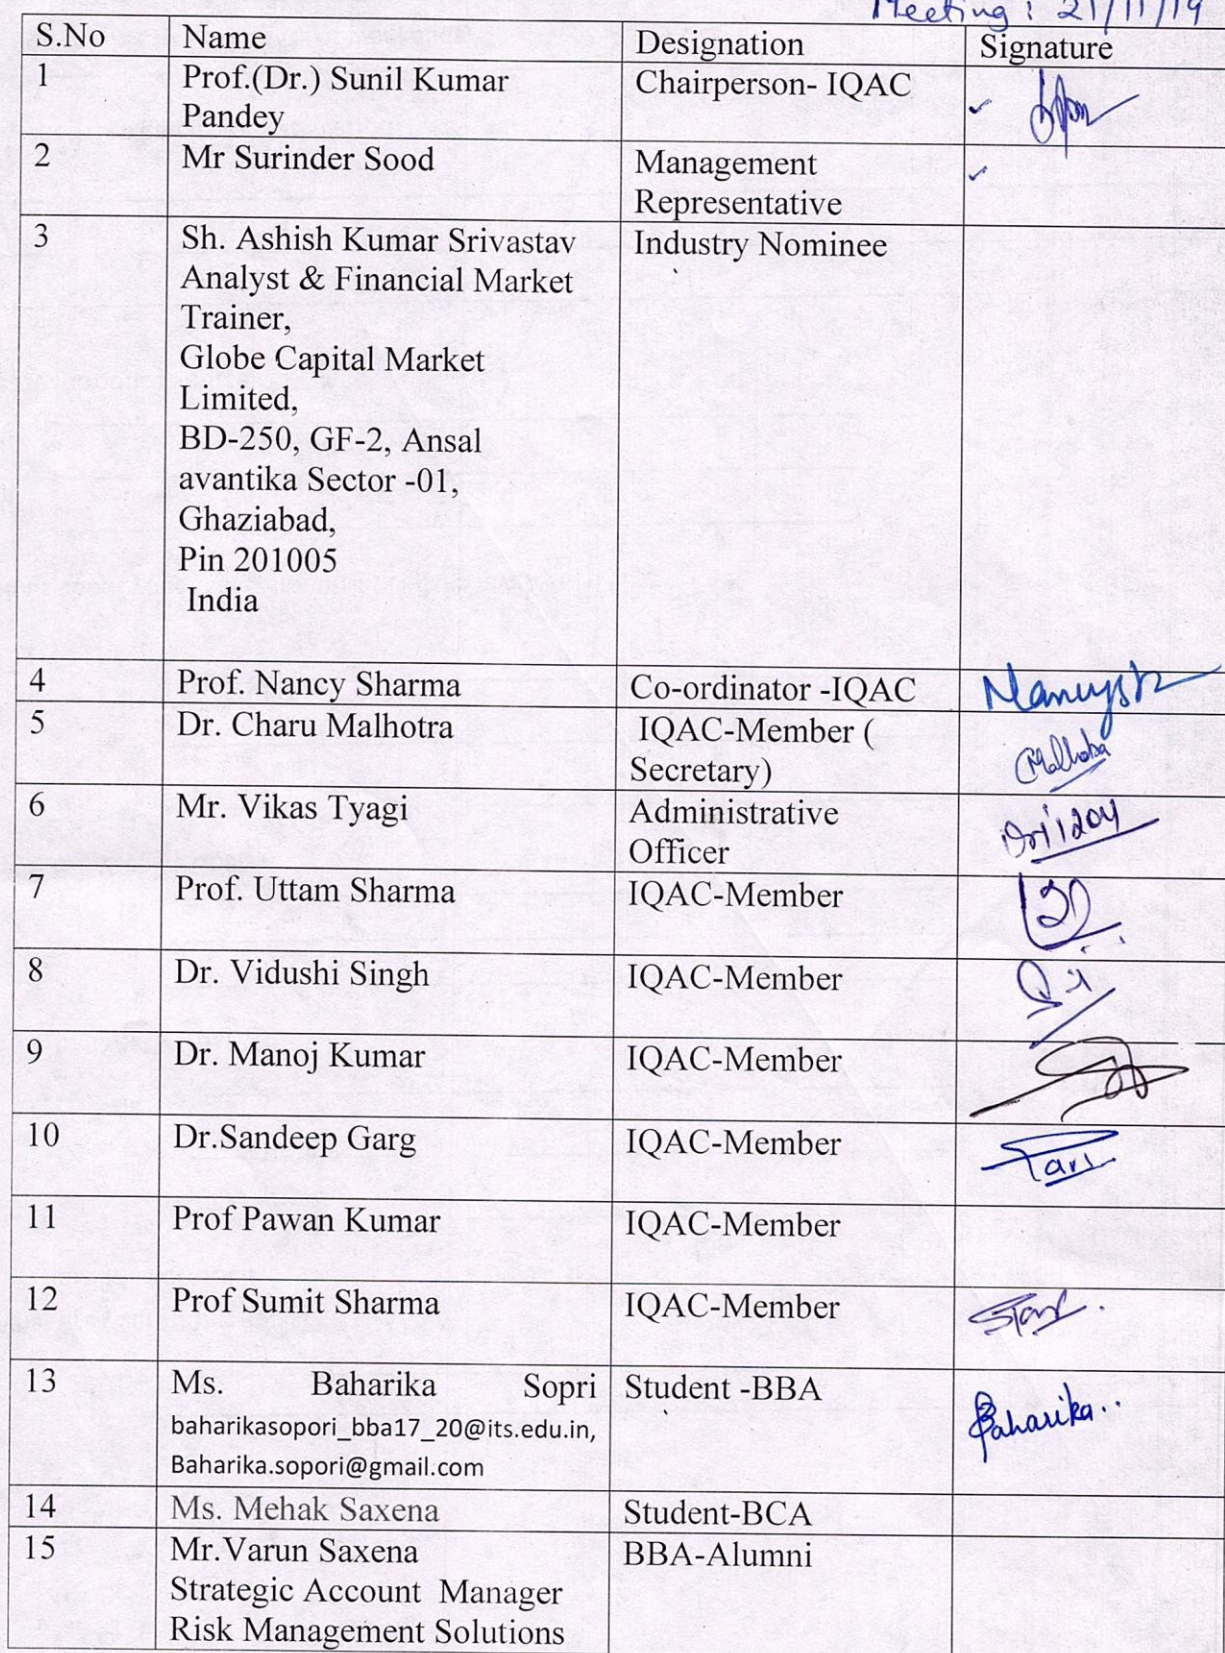 Meeting : 21/11/19
S.No Name Designation Signature
1 Prof.(Dr.) Sunil Kumar Chairperson- IQAC
Pandey
2 Mr Surinder Sood Management
Representative
3 Sh. Ashish Kumar Srivastav Industry Nominee
Analyst & Financial Market
Trainer,
Globe Capital Market
Limited,
BD-250, GF-2, Ansal
avantika Sector -01,
Ghaziabad,
Pin 201005
India
4 Prof. Nancy Sharma Co-ordinator -IQAC
5 Dr. Charu Malhotra IQAC-Member (
Secretary)
6 Mr. Vikas Tyagi Administrative
Officer
7 Prof. Uttam Sharma IQAC-Member
8 Dr. Vidushi Singh IQAC-Member
9 Dr. Manoj Kumar IQAC-Member
10 Dr.Sandeep Garg IQAC-Member
11 Prof Pawan Kumar IQAC-Member
12 Prof Sumit Sharma IQAC-Member
13 Ms. Baharika Sopri Student -BBA
baharikasopori_bba17_20@its.edu.in, Baharika..
Baharika.sopori@gmail.com
14 Ms. Mehak Saxena Student-BCA
15 Mr.Varun Saxena BBA-Alumni
Strategic Account Manager
Risk Management Solutions